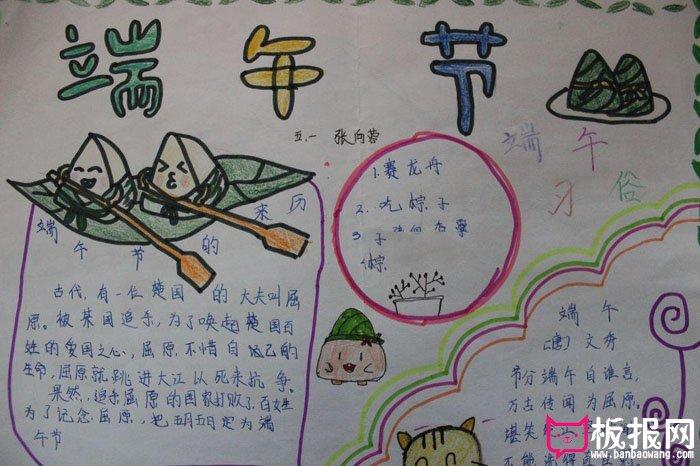 端午节
五.一 张向蓉
端午节的来历
古代,有一位楚国的大夫叫屈
原。被某国追杀,为了唤起楚国百
姓的爱国之心,屈原不惜自己的
生命,屈原就跳进大江以死来抗争。
果然,追杀屈原的国家打败了,百姓
为了记念屈原,把五月五日定为端
午节
1.赛龙舟
2.吃粽子
3
粽.
端午
习俗
端午
(唐)文秀
节分端午自谁言,
万古传闻为屈原。
堪笑
不能洗得
板报网
www.banbaowang.com